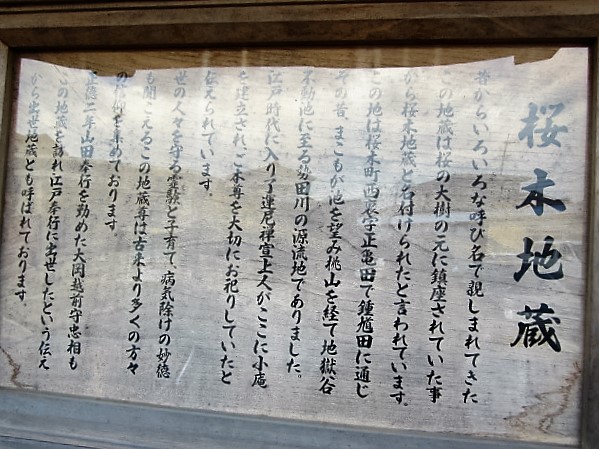 桜木地蔵
昔からいろいろな呼び名で親しまれてきた
この地蔵は桜の大樹の元に鎮座されていた事
から桜木地蔵と名付けられたと言われています。
この地は桜木町西裏字正亀田で鍾馗田に通じ
その昔、まこもが池を望み桃山を経て地獄谷
不動池に至る勢田川の源流地でありました。
江戸時代に入り了運尼禅宣上人がここに小庵
を建立されご本尊を大切にお祀りしていたと
伝えられています。
世の人々を守る霊験と子育て、病気除けの妙徳
も聞こえるこの地蔵尊は古来より多くの方々
の信仰を集めております。
正徳二年山田奉行を勤めた大岡越前守忠相も
この地蔵を訪れ江戸奉行に出世したという伝え
から出世地蔵とも呼ばれております。